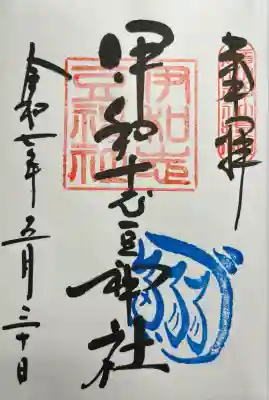 奉拝
伊和志豆神社
伊和志
豆神社
鰯
令和七年 五月三十日